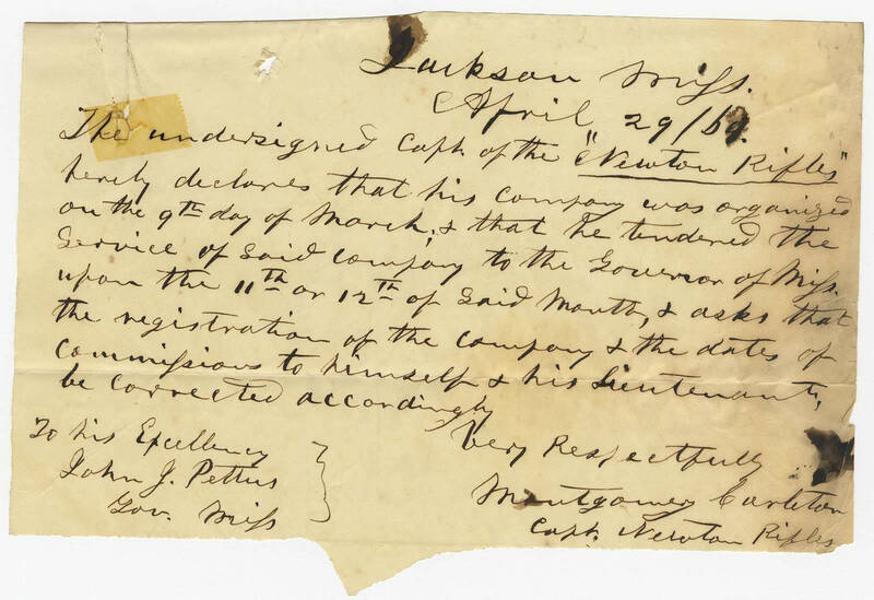 Jackson Miss.
April 29/61.
The undersigned Capt. of the "Newton Rifles"
hereby declares that his company was organized
on the 9th day of March, & that he tendered the
Service of said company to the Governor of Miss.
upon the 11th or 12th of said Month, & asks that
the registration of the company & the dates of
commissions to himself & his Lieutenants,
be corrected accordingly
Very Respectfully
Montgomery Carleton
Capt. Newton Rifles
To his Excellency
John J. Pettus
Gov. Miss